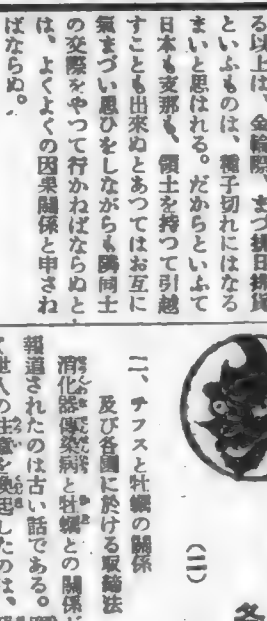 る以上は、金輪際、まづ排日排貨
といふものは、種子切れにはなる
まいと思はれる。だからといふて
日本も支那も、領土を持つて引越
すことも出來ぬとあつてはお互に
氣まづい思ひをしながらも隣同士
の交際をやつて行かねばならぬと
は、よくよくの因果關係と申さね
ばならぬ。
(二)
二、チフスと牡蠣の關係
及び各國に於ける取締法
消化器傳染病と牡蠣との關係が
報道されたのは古い話である。
世人の注意を喚起したのは、